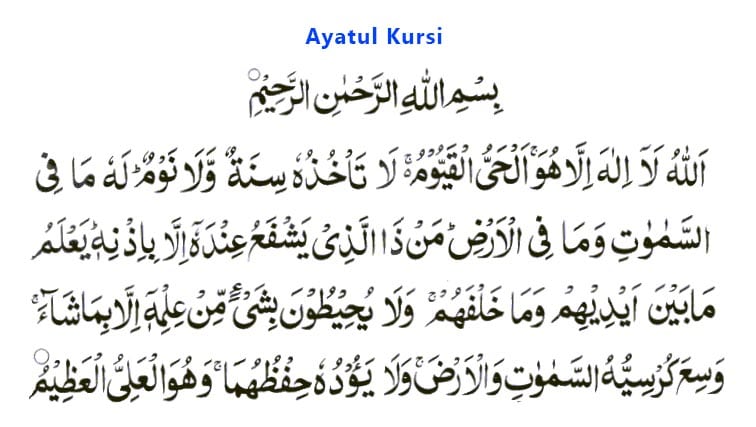 Ayatul Kursi
بِسْمِ اللّٰهِ الرَّحْمٰنِ الرَّحِيْمِ۝
اَللّٰهُ لَاۤ اِلٰهَ اِلَّا هُوَ ۚ اَلْحَىُّ الْقَيُّوْمُ ۚ لَا تَاْخُذُهٗ سِنَةٌ وَّلَا نَوْمٌ ؕ لَهٗ مَا فِى
السَّمٰوٰتِ وَمَا فِى الْاَرْضِ ؕ مَنْ ذَا الَّذِىْ يَشْفَعُ عِنْدَهٗۤ اِلَّا بِاِذْنِهٖ ؕ يَعْلَمُ
مَا بَيْنَ اَيْدِيْهِمْ وَمَا خَلْفَهُمْ ۚ وَلَا يُحِيْطُوْنَ بِشَىْءٍ مِّنْ عِلْمِهٖۤ اِلَّا بِمَا شَآءَ ۚ
وَسِعَ كُرْسِيُّهُ السَّمٰوٰتِ وَالْاَرْضَ ۚ وَلَا يَـُٔوْدُهٗ حِفْظُهُمَا ۚ وَهُوَ الْعَلِىُّ الْعَظِيْمُ۝